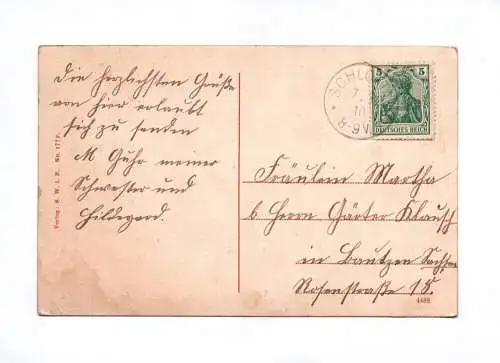 Die herzlichsten Grüße
von hier erlaubt
sich zu senden
M Guhr meiner
Schwester und
Hildegard.
Verlag: S. W. i. B. No. 177
5 5
DEUTSCHES REICH
SCHLO
Fräulein Martha
b. Herrn Gärtner Klausch
in Bautzen Sachsen
Rosenstraße 15.
4488